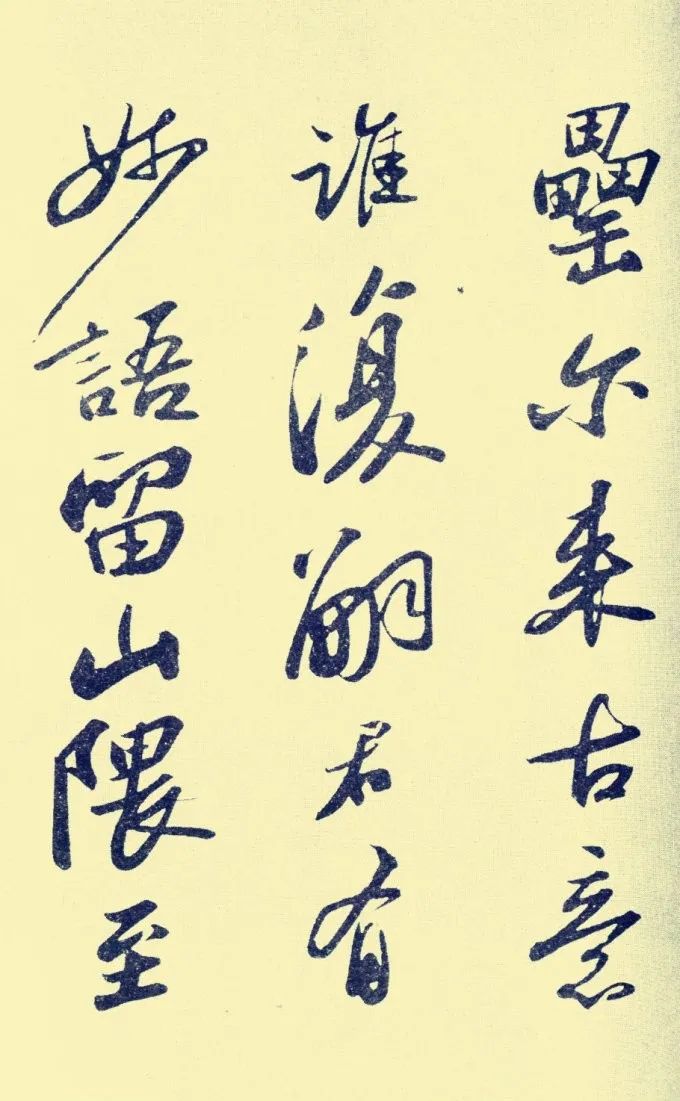 罍尔来古意
誰復嗣君有
妙語留山隈至